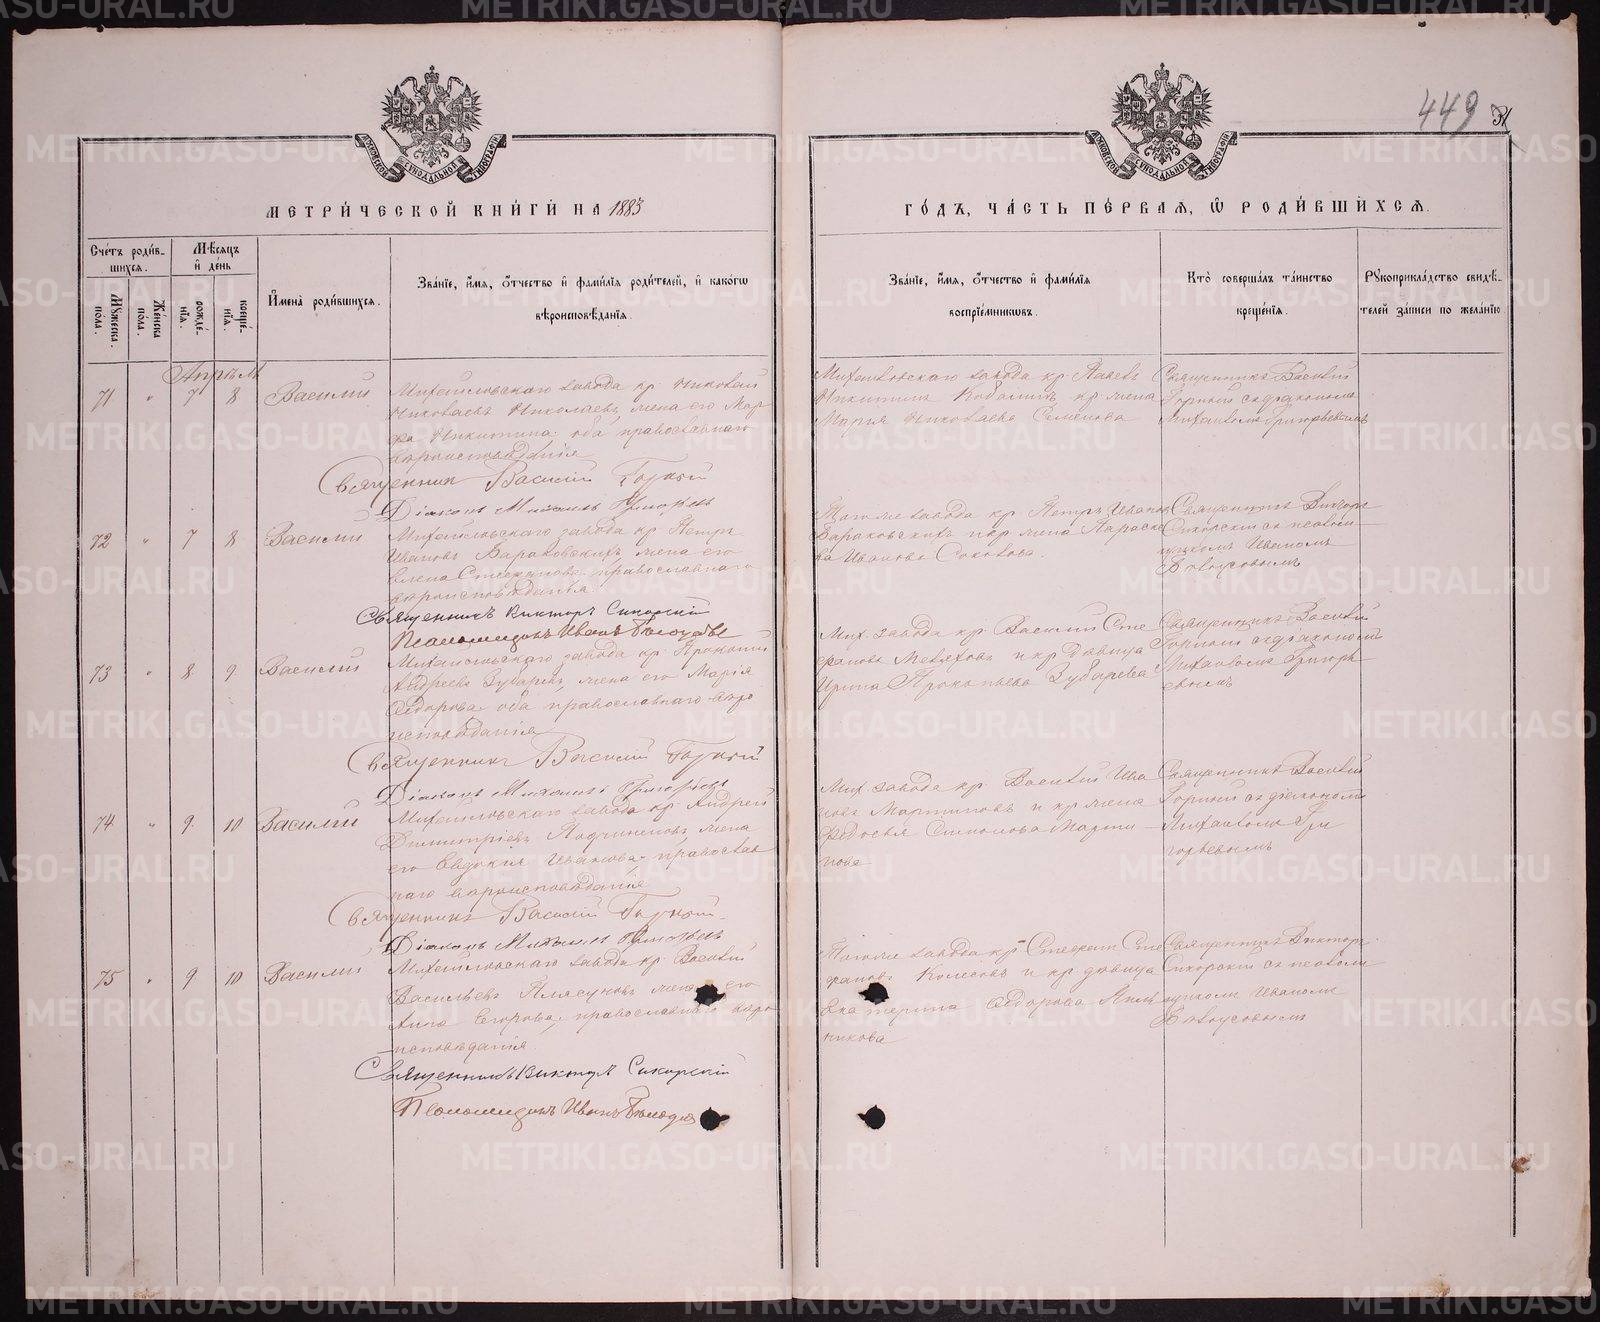 449
МОСКОВСКОЙ СУНОДАЛЬНОЙ ТИПОГРАФІИ
МОСКОВСКОЙ СУНОДАЛЬНОЙ ТИПОГРАФІИ
МЕТРИ́ЧЕСКОЙ КНИ́ГИ НА 1883
ГО́ДЪ, ЧА́СТЬ ПЕ́РВАЯ, Ѡ РОДИ́ВШИХСЯ.
Сче́тъ роди́в-
шихся.
Мꙋжеска по́ла.
Женска по́ла.
Мѣсяцъ и де́нь
рожде́нїя.
креще́нїя.
Имена̀ роди́вшихся.
Зва́нїе, и́мя, о́тчество и фами́лїя роди́телей, и како́гѡ
вѣроисповѣ́данїя.
Зва́нїе, и́мя, о́тчество и фами́лїя
воспрїе́мникѡвъ.
Кто̀ соверша́лъ та́инство
креще́нїя.
Рꙋкоприкла́дство свидѣ́-
телей за́писи по жела́нїю
Апрѣль
71 " 7 8 Василій
Михайловскаго завода кр. Николай
Николаевъ Николаевъ, жена его Мар-
фа Никитина оба православнаго
вѣроисповѣданія
Священник Василій Горный
Діаконъ Михаилъ Григорьевъ
Михайловскаго завода кр. Павелъ
Никитинъ Кобалинъ, кр. жена
Мария Николаева Семенова
Священникъ Василий
Горный съ діакономъ
Михаиломъ Григорьевымъ
72 " 7 8 Василій
Михайловскаго завода кр. Петръ
Ивановъ Бараковскихъ, жена его
Елена Стефанова православнаго
вѣроисповѣданія.
Священникъ Викторъ Сикорскій
Псаломщикъ Иванъ Бѣлоусовъ
Тогоже завода кр. Петръ Иванов
Бараковскихъ и кр. жена Параске-
ва Иванова Соколова.
Священникъ Викторъ
Сикорский съ псалом-
щикомъ Иваномъ
Бѣлоусовымъ
73 " 8 9 Василій
Михайловскаго завода кр. Прокопий
Андреевъ Зубаревъ, жена его Мария
Ѳедорова оба православнаго вѣро-
исповѣданія
Священникъ Василій Горный
Діаконъ Михаилъ Григорьевъ
Мих. завода кр. Василий Сте-
фановъ и кр. дѣвица
Ирина Прокопьева Зубарева
Священникъ Василий
Горный съ діакономъ
Михаиломъ Григорь-
евымъ
74 " 9 10 Василій
Михайловскаго завода кр. Андрей
Димитріевъ жена
его Евдокия Иванова, православ-
наго вѣроисповѣданія
Священникъ Василій Горный
Діаконъ Михаилъ Григорьевъ
Мих. завода кр. Василий Ива-
новъ Мартыновъ и кр. жена
Федосья Симонова Марти-
нова
Священникъ Василий
Горный съ діакономъ
Михаиломъ Гри
горьевымъ
75 " 9 10 Василій
Михайловскаго завода кр. Василий
Васильевъ Плясуновъ жена его
Анна Егорова, православнаго вѣро-
исповѣданія
Священникъ Викторъ Сикорскій
Псаломщикъ Иванъ Бѣлоусов
Тогоже завода кр. Стефанъ Сте-
фановъ Колесовъ и кр. дѣвица
Екатерина Ѳедорова
никова
Священникъ Викторъ
Сикорский съ псалом-
щикомъ Иваномъ
Бѣлоусовымъ
METRIKI.GASO-URAL.RU